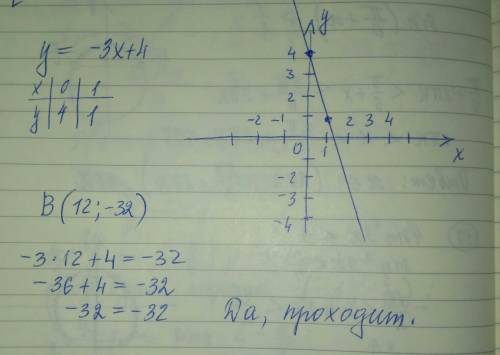 y = -3x+4
x | 0 | 1
y | 4 | 1
B (12; -32)
-3·12+4 = -32
-36+4 = -32
-32 = -32
Да, проходит.
y
4
3
2
-2 -1 0 1 2 3 4
x
-2
-3
-4